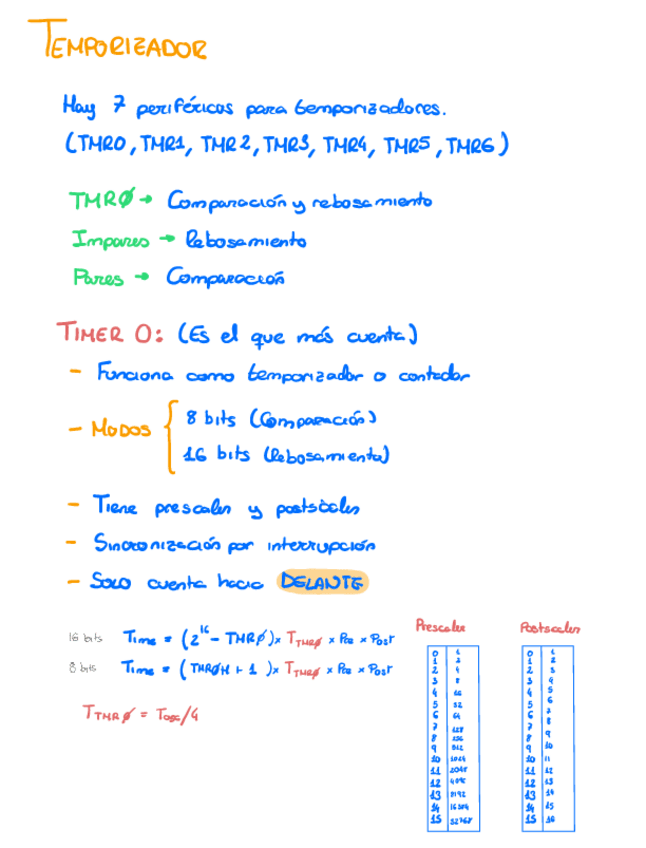 TEMPORIZADOR
Hay 7 periféricos para temporizadores.
(TMR0, TMR1, TMR2, TMR3, TMR4, TMR5, TMR6)
TMRØ → Comparación y rebosamiento
Impares → Rebosamiento
Pares → Comparación
TIMER 0: (Es el que más cuenta)
- Funciona como temporizador o contador
- MODOS { 8 bits (Comparación)
16 bits (Rebosamiento)
- Tiene prescaler y postscaler
- Sincronización por interrupción
- Solo cuenta hacia DELANTE
16 bits Time = (2^16 - TMRØ) x T_TMRØ x Pre x Post
8 bits Time = (TMRØH + 1) x T_TMRØ x Pre x Post
T_TMRØ = Tosc/4
Prescaler
0 1
1 2
2 4
3 8
4 16
5 32
6 64
7 128
8 256
9 512
10 1024
11 2048
12 4096
13 8192
14 16384
15 32768
Postscaler
0 1
1 2
2 3
3 4
4 5
5 6
6 7
7 8
8 9
9 10
10 11
11 12
12 13
13 14
14 15
15 16